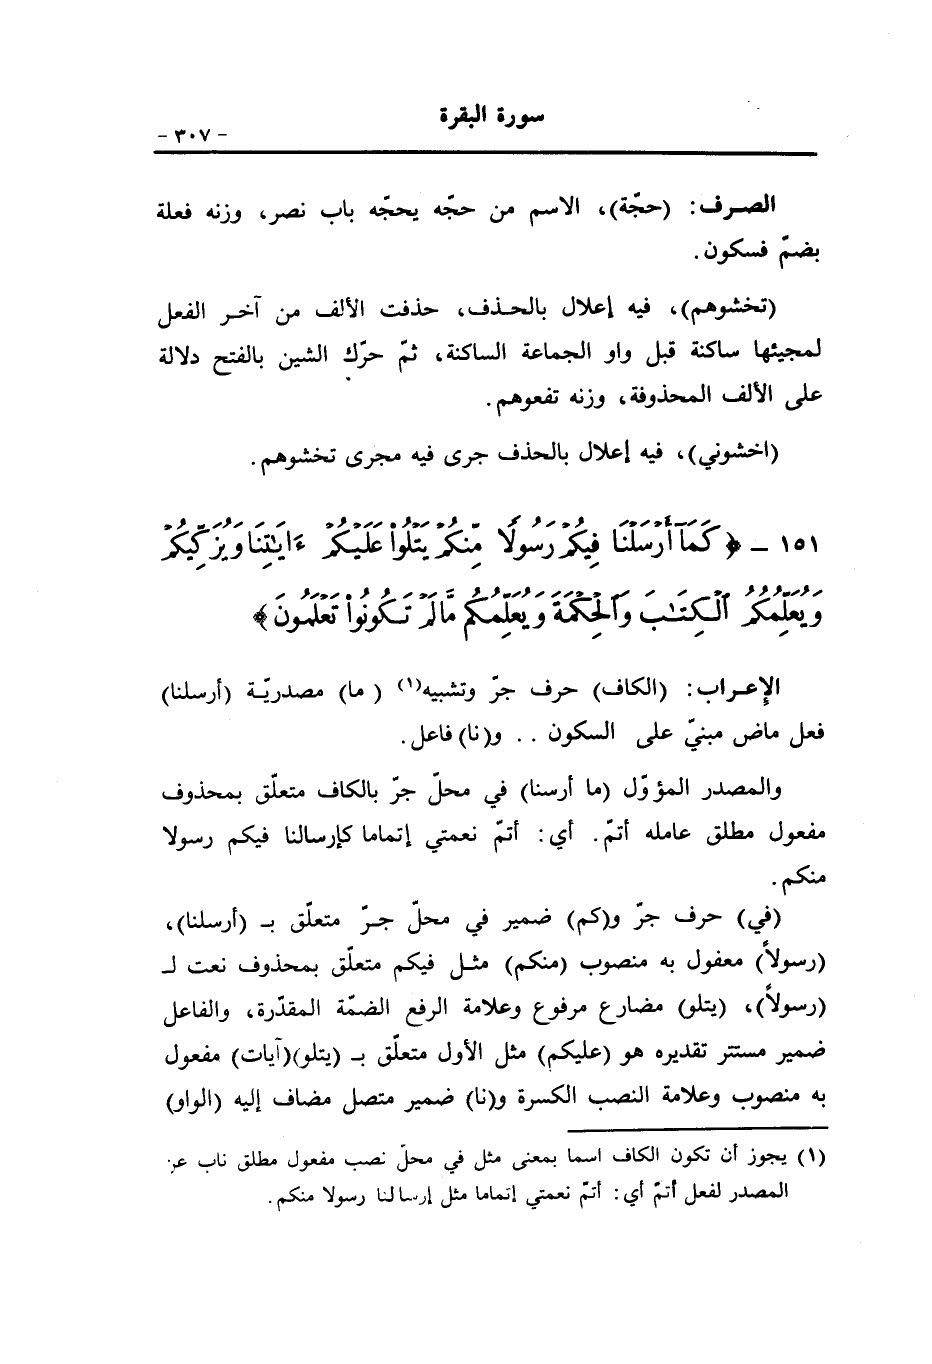 سورة البقرة
- ٣٠٧ -
الصرف: (حجّة)، الاسم من حجّه يحجّه باب نصر، وزنه فعلة
بضمّ فسكون.
(تخشوهم)، فيه إعلال بالحذف، حذفت الألف من آخر الفعل
لمجيئها ساكنة قبل واو الجماعة الساكنة، ثمّ حرّك الشين بالفتح دلالة
على الألف المحذوفة، وزنه تفعوهم.
(اخشوني)، فيه إعلال بالحذف جرى فيه مجرى تخشوهم.
١٥١ - ﴿ كَمَآ أَرْسَلْنَا فِيكُمْ رَسُولًا مِّنكُمْ يَتْلُوا۟ عَلَيْكُمْ ءَايَٰتِنَا وَيُزَكِّيكُمْ
وَيُعَلِّمُكُمُ ٱلْكِتَٰبَ وَٱلْحِكْمَةَ وَيُعَلِّمُكُم مَّا لَمْ تَكُونُوا۟ تَعْلَمُونَ ﴾
الإعراب: (الكاف) حرف جرّ وتشبيه(١) (ما) مصدريّة (أرسلنا)
فعل ماض مبنيّ على السكون .. و(نا) فاعل.
والمصدر المؤوّل (ما أرسنا) في محلّ جرّ بالكاف متعلّق بمحذوف
مفعول مطلق عامله أتمّ. أي: أتمّ نعمتي إتماما كإرسالنا فيكم رسولا
منكم.
(في) حرف جرّ و(كم) ضمير في محلّ جرّ متعلّق بـ (أرسلنا)،
(رسولاً) معفول به منصوب (منكم) مثل فيكم متعلّق بمحذوف نعت لـ
(رسولاً)، (يتلو) مضارع مرفوع وعلامة الرفع الضمّة المقدّرة، والفاعل
ضمير مستتر تقديره هو (عليكم) مثل الأول متعلّق بـ (يتلو)(آيات) مفعول
به منصوب وعلامة النصب الكسرة و(نا) ضمير متصل مضاف إليه (الواو)
(١) يجوز أن تكون الكاف اسما بمعنى مثل في محلّ نصب مفعول مطلق ناب عن
المصدر لفعل أتمّ أي: أتمّ نعمتي إتماما مثل إرسالنا رسولا منكم.